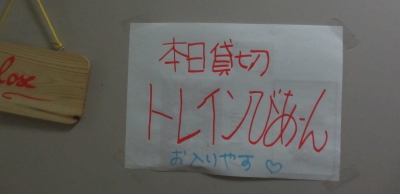 lose
本日貸切
トレインびあーん
お入りやす♡